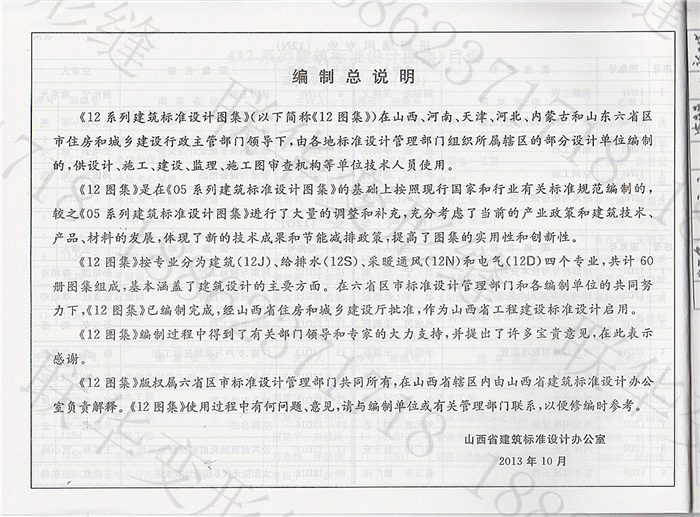 编制总说明
《12系列建筑标准设计图集》(以下简称《12图集》)在山西、河南、天津、河北、内蒙古和山东六省区
市住房和城乡建设行政主管部门领导下,由各地标准设计管理部门组织所属辖区的部分设计单位编制
的,供设计、施工、建设、监理、施工图审查机构等单位技术人员使用。
《12图集》是在《05系列建筑标准设计图集》的基础上按照现行国家和行业有关标准规范编制的,
较之《05系列建筑标准设计图集》进行了大量的调整和补充,充分考虑了当前的产业政策和建筑技术、
产品、材料的发展,体现了新的技术成果和节能减排政策,提高了图集的实用性和创新性。
《12图集》按专业分为建筑(12J)、给排水(12S)、采暖通风(12N)和电气(12D)四个专业,共计60
册图集组成,基本涵盖了建筑设计的主要方面。在六省区市标准设计管理部门和各编制单位的共同努
力下,《12图集》已编制完成,经山西省住房和城乡建设厅批准,作为山西省工程建设标准设计启用。
《12图集》编制过程中得到了有关部门领导和专家的大力支持,并提出了许多宝贵意见,在此表示
感谢。
《12图集》版权属六省区市标准设计管理部门共同所有,在山西省辖区内由山西省建筑标准设计办公
室负责解释。《12图集》使用过程中有何问题、意见,请与编制单位或有关管理部门联系,以便修编时参考。
山西省建筑标准设计办公室
2013年10月
联华变形缝
18862371718